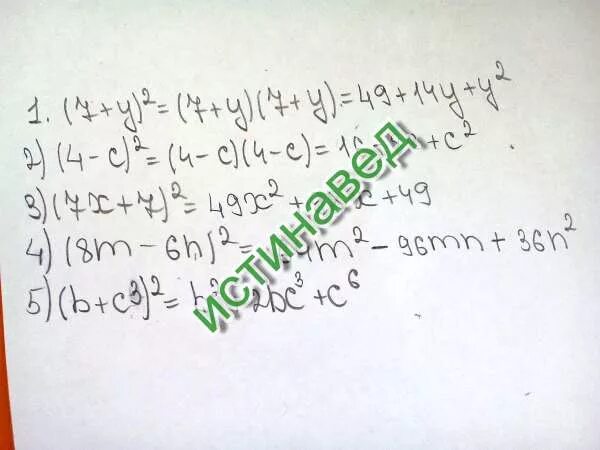 1. (7+y)² = (7+y)(7+y) = 49 + 14y + y²
2) (4-c)² = (4-c)(4-c) = 16 + c²
3) (7x+7)² = 49x² + x + 49
4) (8m - 6n)² = 4m² - 96mn + 36n²
5) (b+c³)² = b² 2bc³ + c⁶
истинавед